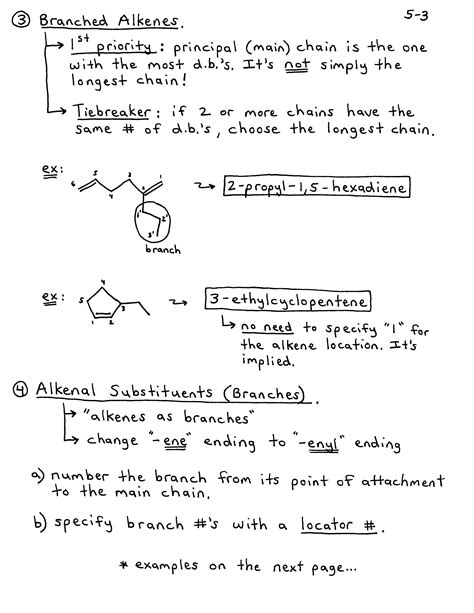 5-3
③ Branched Alkenes.
1st priority: principal (main) chain is the one
with the most d.b.'s. It's not simply the
longest chain!
Tiebreaker: if 2 or more chains have the
same # of d.b.'s, choose the longest chain.
ex:
6 5 4 3 2 1
1' 2' 3'
branch
2-propyl-1,5-hexadiene
ex:
4
5 3
1 2
3-ethylcyclopentene
no need to specify "1" for
the alkene location. It's
implied.
④ Alkenal Substituents (Branches).
"alkenes as branches"
change "-ene" ending to "-enyl" ending
a) number the branch from its point of attachment
to the main chain.
b) specify branch #'s with a locator #.
* examples on the next page...